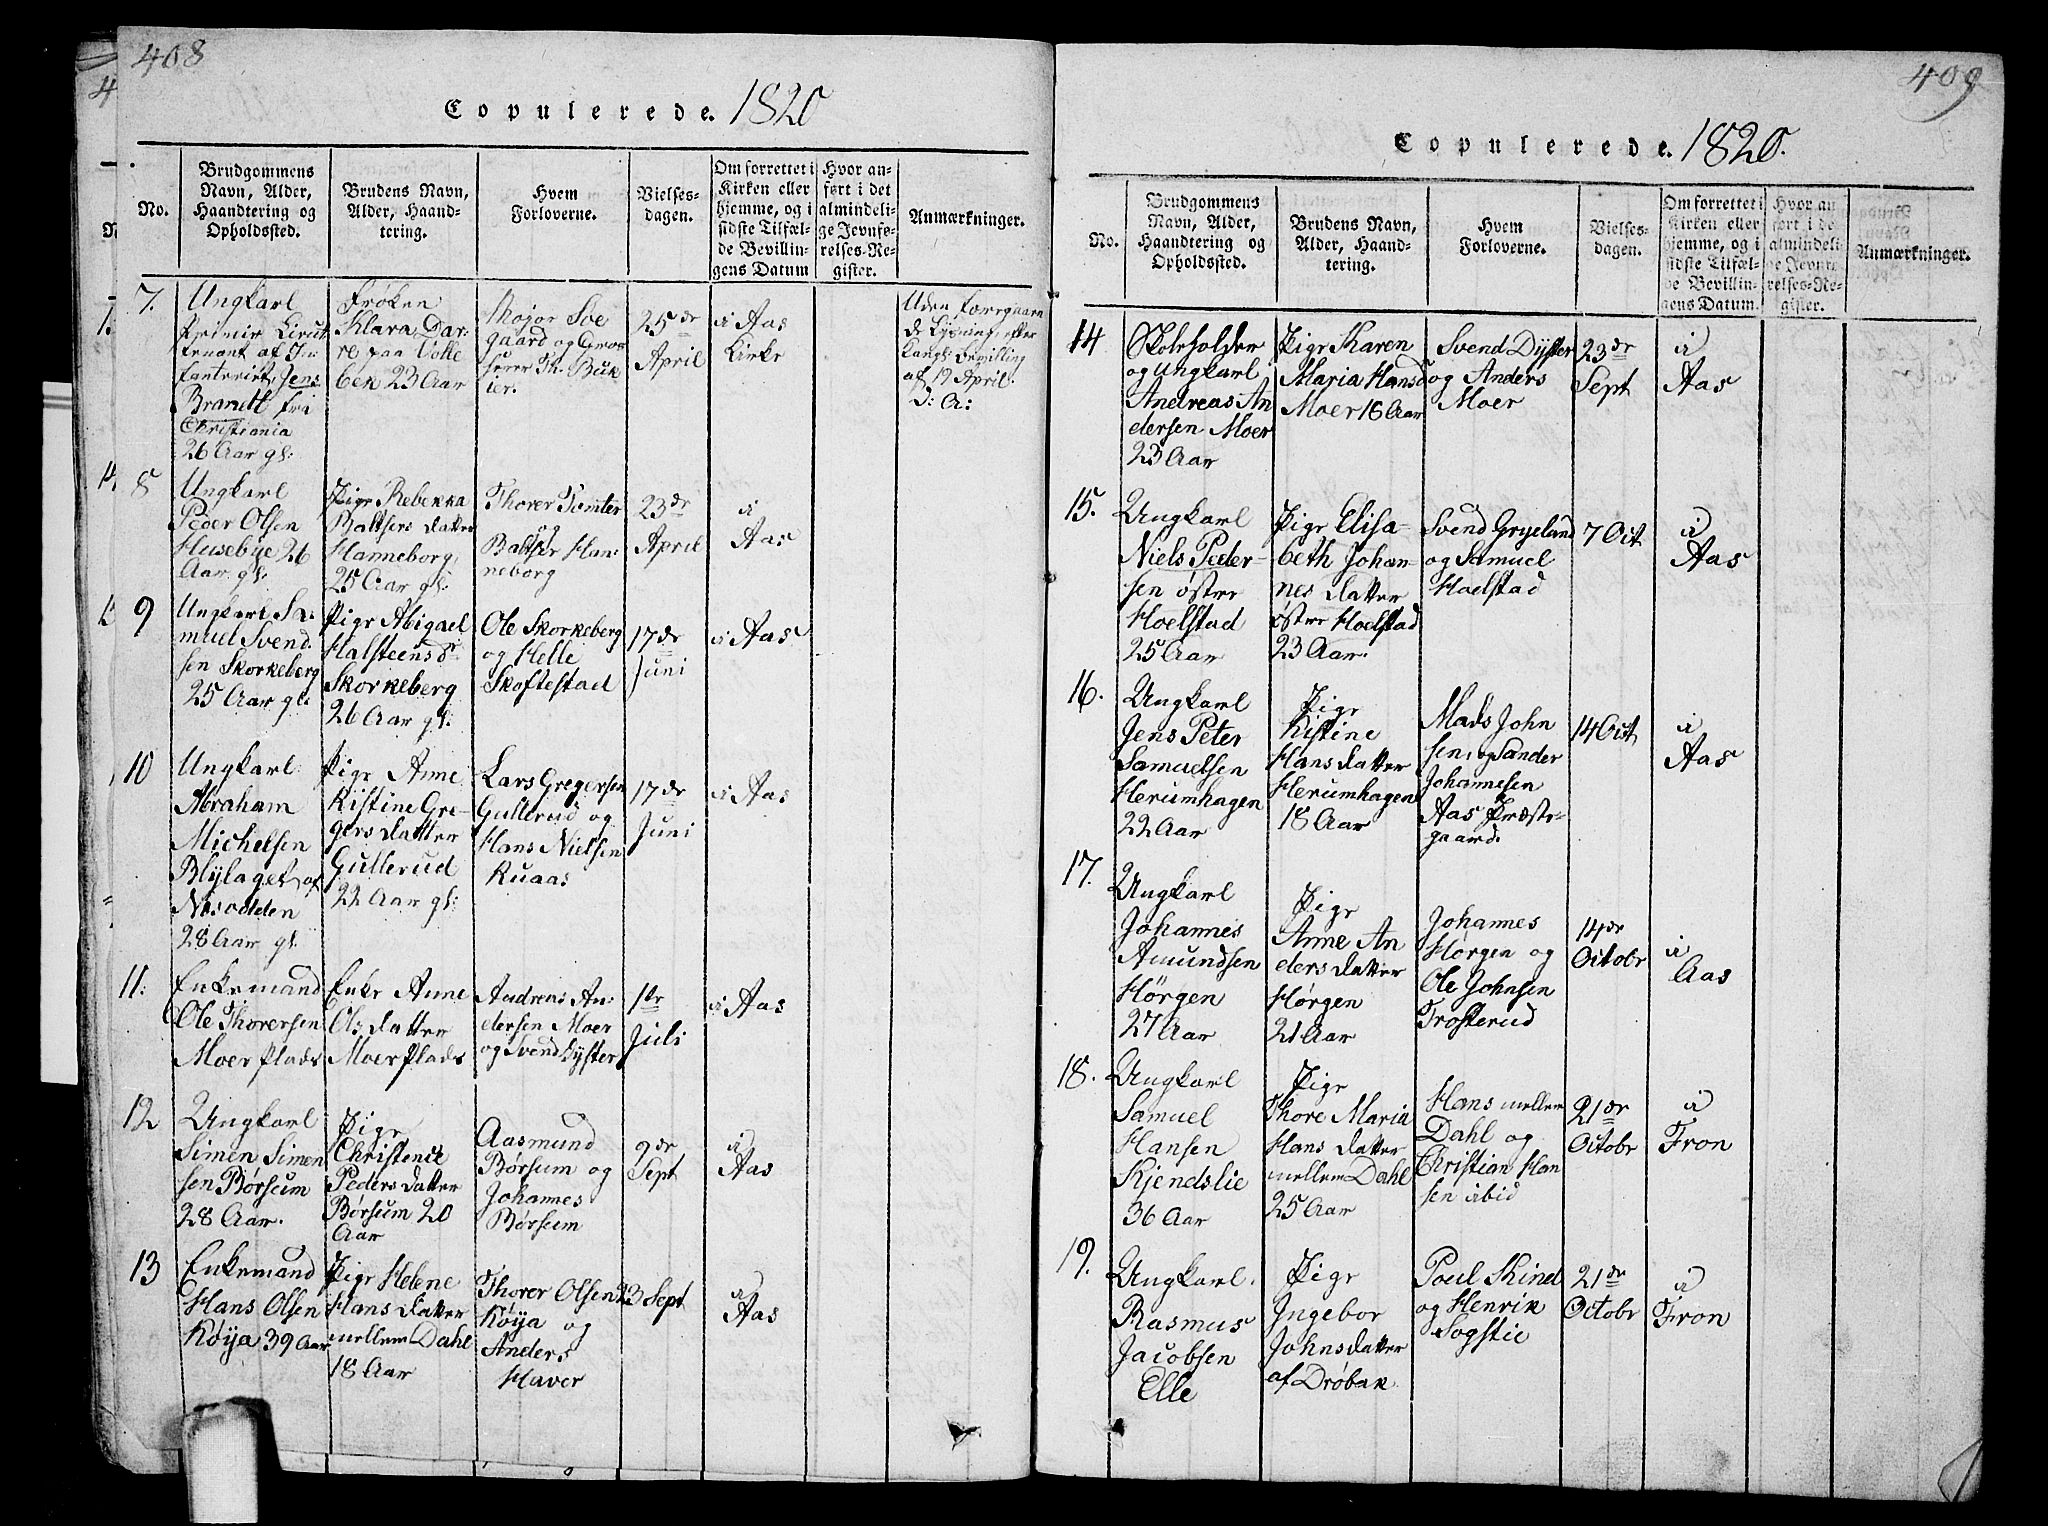 408
Copulerede. 1820
No.
Brudgommens
Navn, Alder,
Haandtering og
Opholdssted.
Brudens Navn,
Alder, Haand-
tering.
Hvem
Forloverne.
Vielses-
dagen.
Om forrettet i
Kirken eller
hjemme, og i
sidste Tilfæl-
de Bevillin-
gens Datum
Hvor an-
ført i det
almindeli-
ge Jevnfø-
relses-Re-
gister.
Anmærkninger.
7.
Ungkarl
premir Lieut
tenant af In
fanteriet, Jens
Brandt fri
Christiania
26 Aar gl:
Frøken
Klara Dar-
re paa Volle
bek 23 Aar
Major Sve
gaard og Gros
serer Th. Buk
ier.
25de
April
i Aas
Kirke
Uden foregaaen
de Lysning, efter
Kongl. Bevilling
af 19 April.
D: A:
8
Ungkarl
Peder Olsen
Husebye 26
Aar gl:
Pige Rebekka
Baltsers datter
Hanneborg,
25 Aar gl:
Thorer Tomter
og
Baltser Han-
neborg
23de
April
i
Aas
9
Ungkarl Sa-
muel Svend-
sen Skorkeberg
25 Aar gl:
Pige Abigael
Halsteensdr
Skorkeberg
26 Aar gl:
Ole Skorkeberg
og Helle
Skoftestad
17de
Juni
i Aas
10
Ungkarl
Abraham
Michelsen
Blylaget af
Nesodden
28 Aar gl.
Pige Anne
Kistine Gre-
gers datter
Gullerud
22 Aar gl:
Lars Gregersen
Gullerud og
Hans Nielsen
Ruaas
17de
Juni
i Aas
11:
Enkemand
Ole Thorersen
Moer plads
Enke Anne
Ols datter
Moer plads
Andreas An-
dersen Moer
og Svend Dyster
1te
Juli
i Aas
12
Ungkarl
Simen Simen
sen Børsum
28 Aar.
Pige
Christence
Peders datter
Børsum 20
Aar
Aasmund
Børsum og
Johannes
Børsum
9de
Sept
i
Aas
13
Enkemand
Hans Olsen
Køya 39 Aar
Pige Helene
Hans datter
mellem Dahl
18 Aar
Thorer Olsen
Køya og
Anders
Haver
23 Sept
i
Aas
409
Copulerede. 1820.
No.
Brudgommens
Navn, Alder,
Haandtering og
Opholdssted.
Brudens Navn,
Alder, Haand-
tering.
Hvem
Forloverne.
Vielses-
dagen.
Om forrettet i
Kirken eller
hjemme, og i
sidste Tilfæl-
de Bevillin-
gens Datum.
Hvor an-
ført i det
almindeli-
ge Jevnfø-
relses-Re-
gister.
Anmærkninger.
14
Skoleholder
og Ungkarl
Andreas An
dersen Moer
23 Aar
Pige Karen
Maria Hansd
Moer 16 Aar
Svend Dyster
og Anders
Moer
23de
Sept
i
Aas
15.
Ungkarl
Niels Peder-
sen østre
Hoelstad
25 Aar
Pige Elisa-
beth Johan-
nes datter
østre Hoelstad
23 Aar.
Svend Gryeland
og Samuel
Hoelstad
7 Oct
i
Aas
16.
Ungkarl
Jens Peter
Samuelsen
Herumhagen
22 Aar
Pige
Kistine
Hans datter
Herumhagen
18 Aar
Mads John
sen, og Sander
Johannesen
Aas Præste-
gaard.
14 Oct
i
Aas
17.
Ungkarl
Johannes
Amundsen
Hørgen
27 Aar
Pige
Anne An
ders datter
Hørgen
21 Aar
Johannes
Hørgen og
Ole Johnsen
Trosterud
14de
Octobr
i
Aas
18.
Ungkarl
Samuel
Hansen
Kjendslie
36 Aar
Pige
Thore Maria
Hans datter
mellem Dahl
25 Aar
Hans mellem
Dahl og
Christian Han
sen ibid
21de
Octobr
i
Fron
19.
Ungkarl.
Rasmus
Jacobsen
Elle
Pige
Ingebor
Johnsdatter
af Drøbak
Poul Skind
og Henrik
Sogstie
21de
Octobr
i
Fron